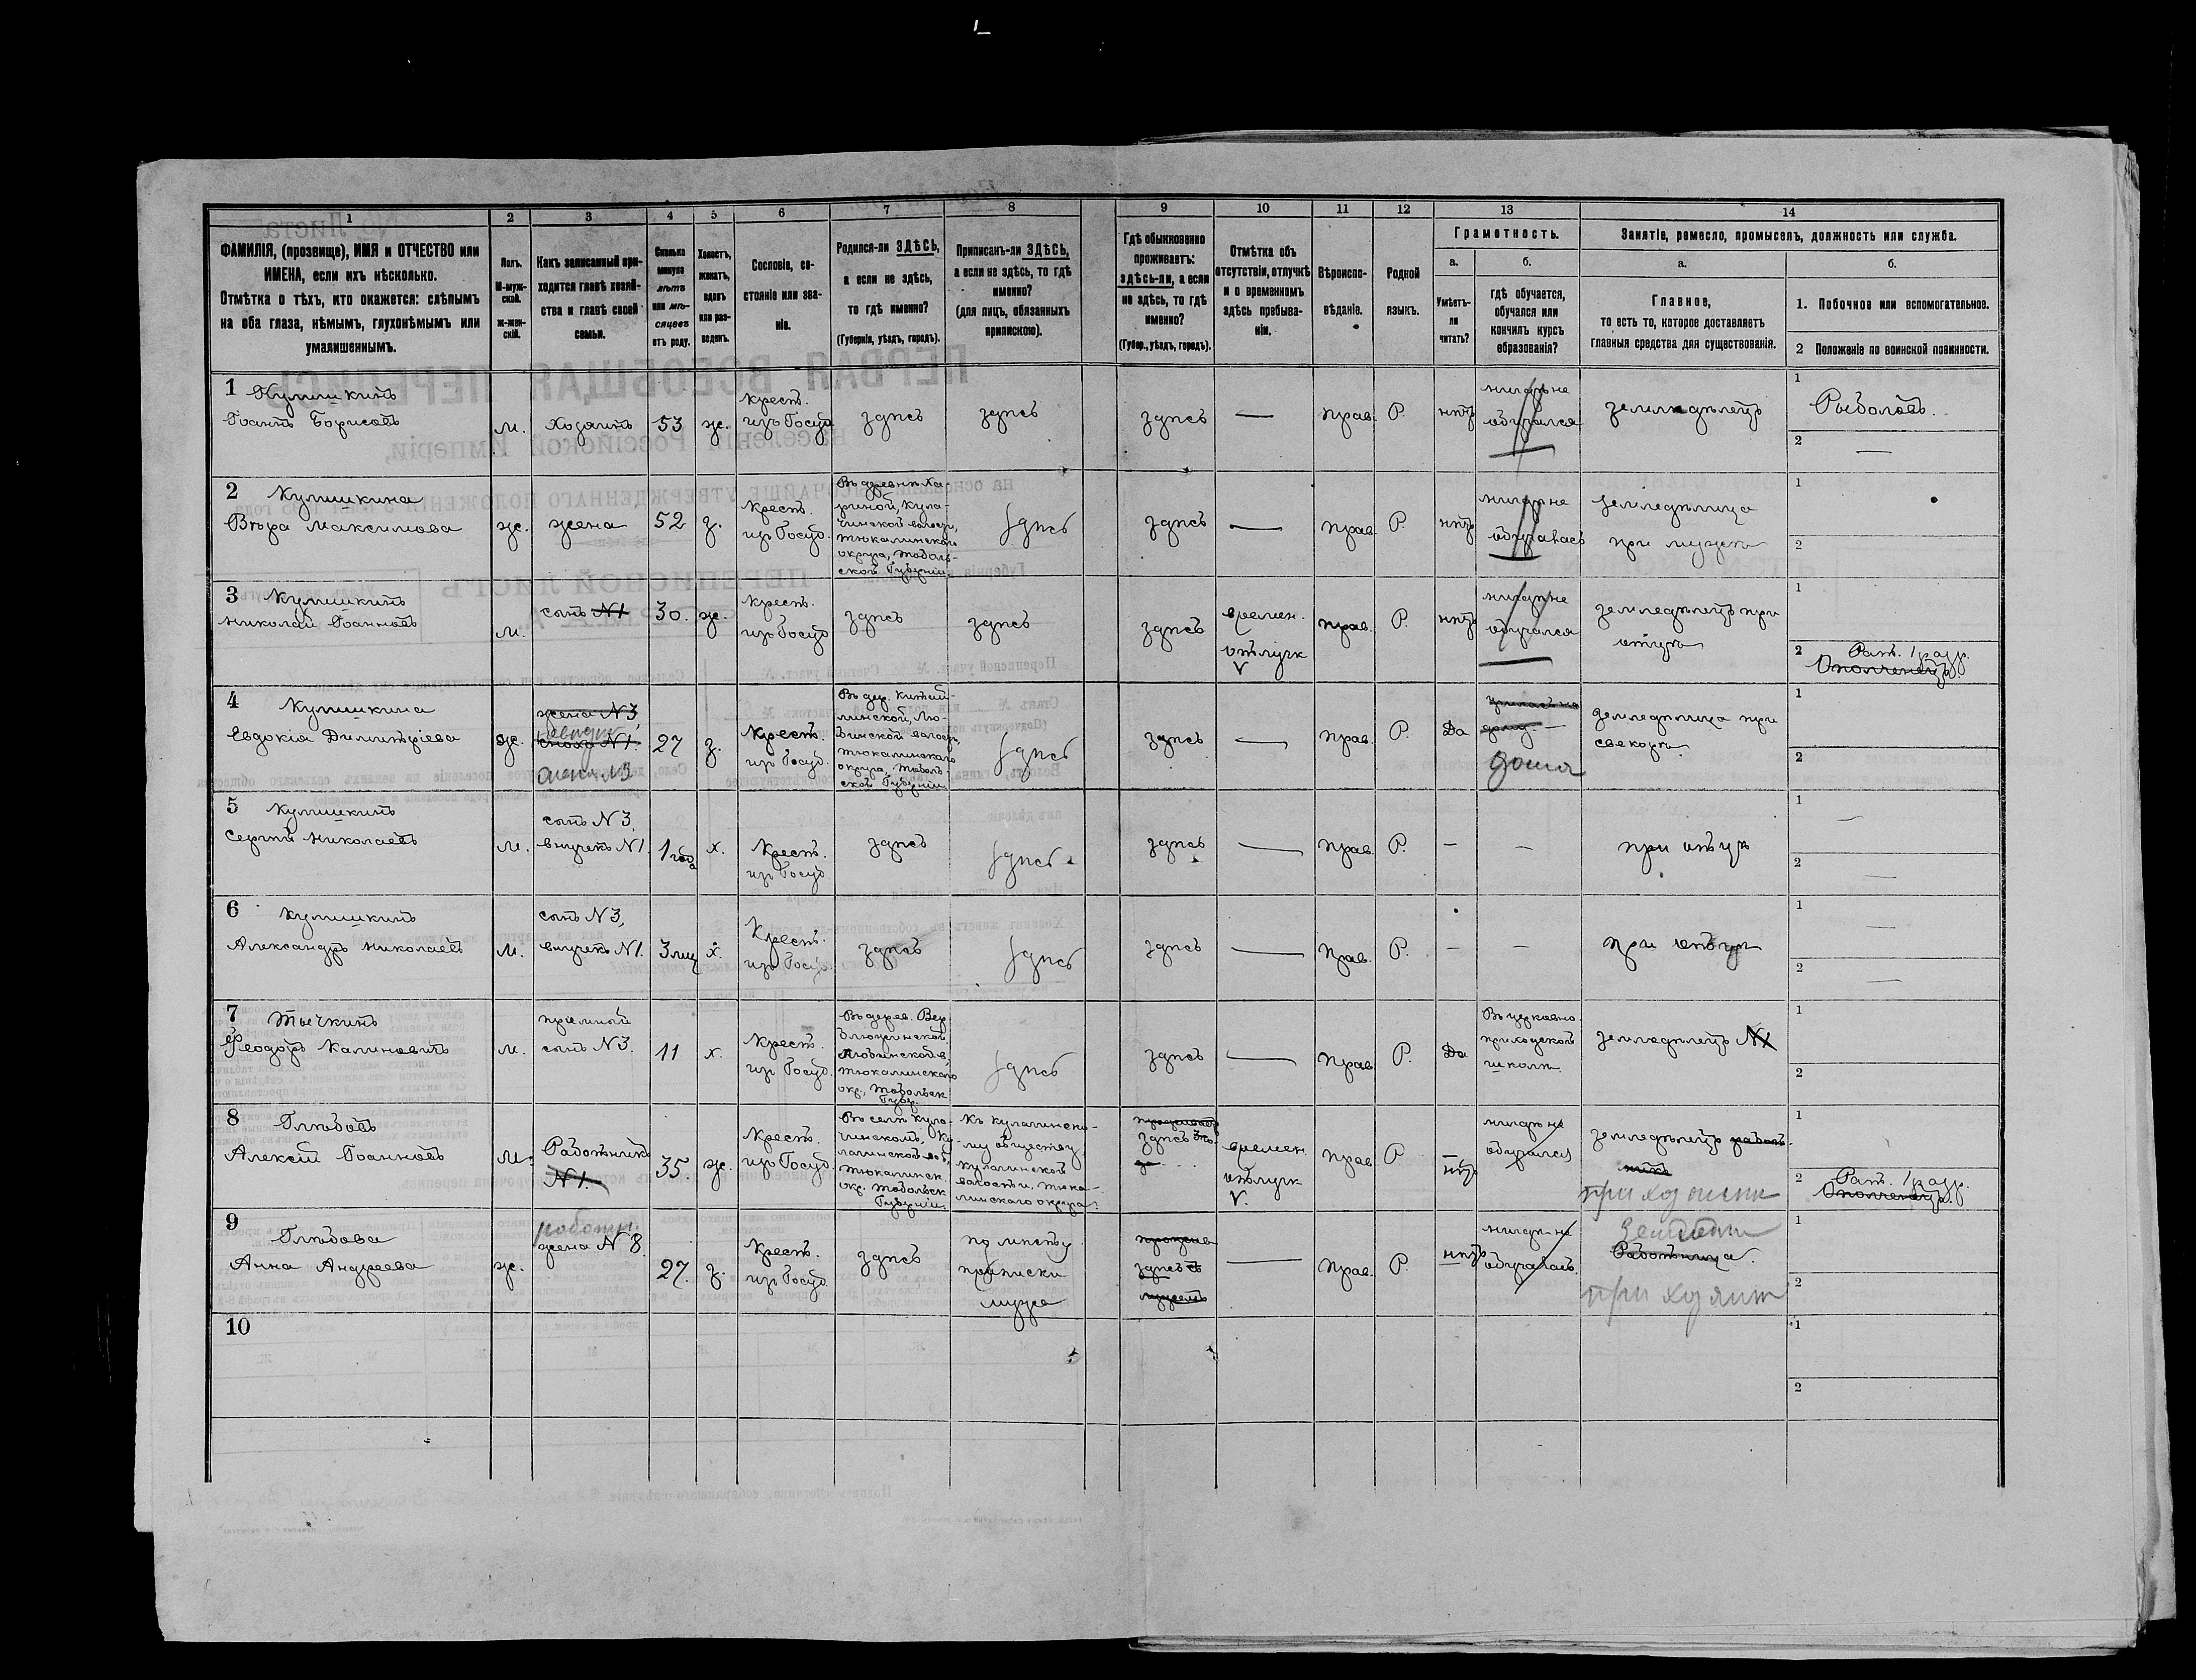 1 2 3 4 5 6 7 8 9 10 11 12 13 14
ФАМИЛІЯ, (прозвище), ИМЯ и ОТЧЕСТВО или
ИМЕНА, если ихъ нѣсколько.
Отмѣтка о тѣхъ, кто окажется: слѣпымъ
на оба глаза, нѣмымъ, глухонѣмымъ или
умалишеннымъ.
Полъ.
М-муж-
ской.
Ж-жен-
скій.
Какъ записанный при-
ходится главѣ хозяй-
ства и главѣ своей
семьи.
Сколько
минуло
лѣтъ
или мѣ-
сяцевъ
отъ роду.
Холостъ,
женатъ,
вдовъ
или раз-
веденъ.
Сословіе, со-
стояніе или зва-
ніе.
Родился-ли ЗДѢСЬ,
а если не здѣсь,
то гдѣ именно?
(Губернія, уѣздъ, городъ).
Приписанъ-ли ЗДѢСЬ,
а если не здѣсь, то гдѣ
именно?
(для лицъ, обязанныхъ
припискою).
Гдѣ обыкновенно
проживаетъ:
здѣсь-ли, а если
не здѣсь, то гдѣ
именно?
(Губер., уѣздъ, городъ).
Отмѣтка объ
отсутствіи, отлучкѣ
и о временномъ
здѣсь пребыва-
ніи.
Вѣроиспо-
вѣданіе.
Родной
языкъ.
Грамотность.
а.
Умѣетъ-
ли
читать?
б.
гдѣ обучается,
обучался или
кончилъ курсъ
образованія?
Занятіе, ремесло, промыселъ, должность или служба.
а.
Главное,
то есть то, которое доставляетъ
главныя средства для существованія.
б.
1. Побочное или вспомогательное.
2 Положеніе по воинской повинности.
1 Кулишкинъ
Іоаннъ Борисовъ
м.
Хозяинъ
53
ж.
Крест.
изъ Госуд.
здѣсь
здѣсь
здѣсь
—
прав.
Р.
нѣтъ
нигдѣ не
обучался
земледѣлецъ
1
Рыболовъ.
2 —
2 Кулишкина
Вѣра Максимова
ж.
жена
52
з.
Крест.
изъ Госуд.
Въ деревнѣ Ха-
риной, Кула-
чинской волости,
Тюкалинскаго
округа, Тоболь-
ской Губерніи.
здѣсь
здѣсь
—
прав.
Р.
нѣтъ
нигдѣ не
обучалась
земледѣлица
при мужѣ
1
2
3 Кулишкинъ
Николай Іоанновъ
м.
сынъ N1
30.
ж.
Крест.
изъ Госуд.
здѣсь
здѣсь
здѣсь
времен.
отлучк
V
прав.
Р.
нѣтъ
нигдѣ не
обучался
земледѣлецъ при
отцѣ
1
2 Рат. 1 разр.
Ополченецъ.
4 Кулишкина
Евдокія Димитріева
ж.
жена N3,
сноха N1
жена N3
27
з.
Крест.
изъ Госуд.
Въ дер. Китай-
линской, Лю-
бинской волости,
Тюкалинскаго
округа, Тоболь-
ской Губерніи
здѣсь
здѣсь
—
прав.
Р.
Да
дома
земледѣлица при
свекорѣ
1
2
5 Кулишкинъ
Сергѣй Николаевъ
м.
сынъ N3.
внучекъ N1.
1 года
х.
Крест.
изъ Госуд.
здѣсь
здѣсь
здѣсь
—
прав.
Р.
—
—
при отцѣ
1 —
2 —
6 Кулишкинъ
Александръ Николаевъ
м.
сынъ N3,
внучекъ N1.
3 мц
х.
Крест.
изъ Госуд.
здѣсь
здѣсь
здѣсь
—
прав.
Р.
—
—
при отцѣ
1 —
2 —
7 Тычкинъ
Феодоръ Калиновичъ
м.
приемный
сынъ N3.
11
х.
Крест.
изъ Госуд.
Въ дерев. Вер
Любинской в,
Тюкалинскаго
окр., Тобольск
Губер.
здѣсь
здѣсь
—
прав
Р.
Да
Въ церковно
приходской
школѣ
земледѣлецъ N1
1
2
8 Глѣбовъ
Алексій Іоанновъ
м.
Работникъ
N1.
35.
ж.
Крест.
изъ Госуд.
Въ селѣ Кула-
чинскомъ, Ку-
лачинской вол.,
Тюкалинск.
окр. Тобольск
Губерніи.
Къ Кулачинско-
му обществу,
Кулачинской
волости, Тюка-
линскаго округа.
здѣсь
времен.
отлучк
V.
прав.
Р
нѣтъ
нигдѣ не
обучался
земледѣлецъ работ-
никъ
при хозяинѣ
1
2 Рат. 1 разр.
Ополченецъ.
9 Глѣбова
Анна Андреева
ж.
работн.
жена N 8.
27.
з.
Крест.
изъ Госуд.
здѣсь
по мѣсту
приписки
мужа
здѣсь съ
мужемъ
—
прав.
Р.
нѣтъ
нигдѣ не
обучалась.
Работница.
при хозяинѣ
1
2
10
1
2